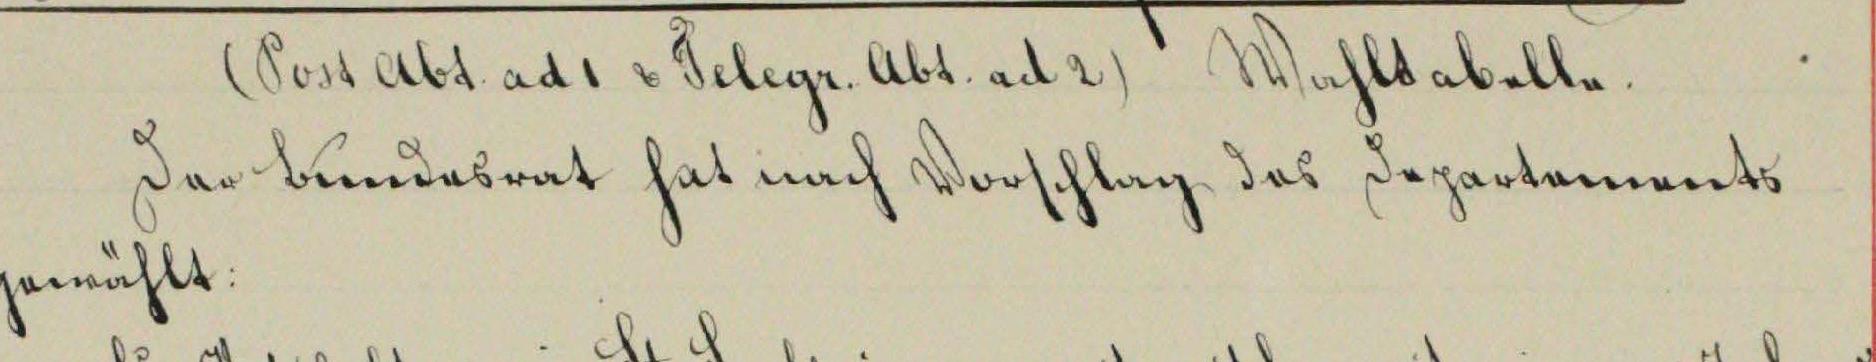 (Post Abt. ad 1 & Telegr. Abt. ad 2) Wahltabelle.
Der Bundesrat hat nach Vorschlag des Departements
gewählt: